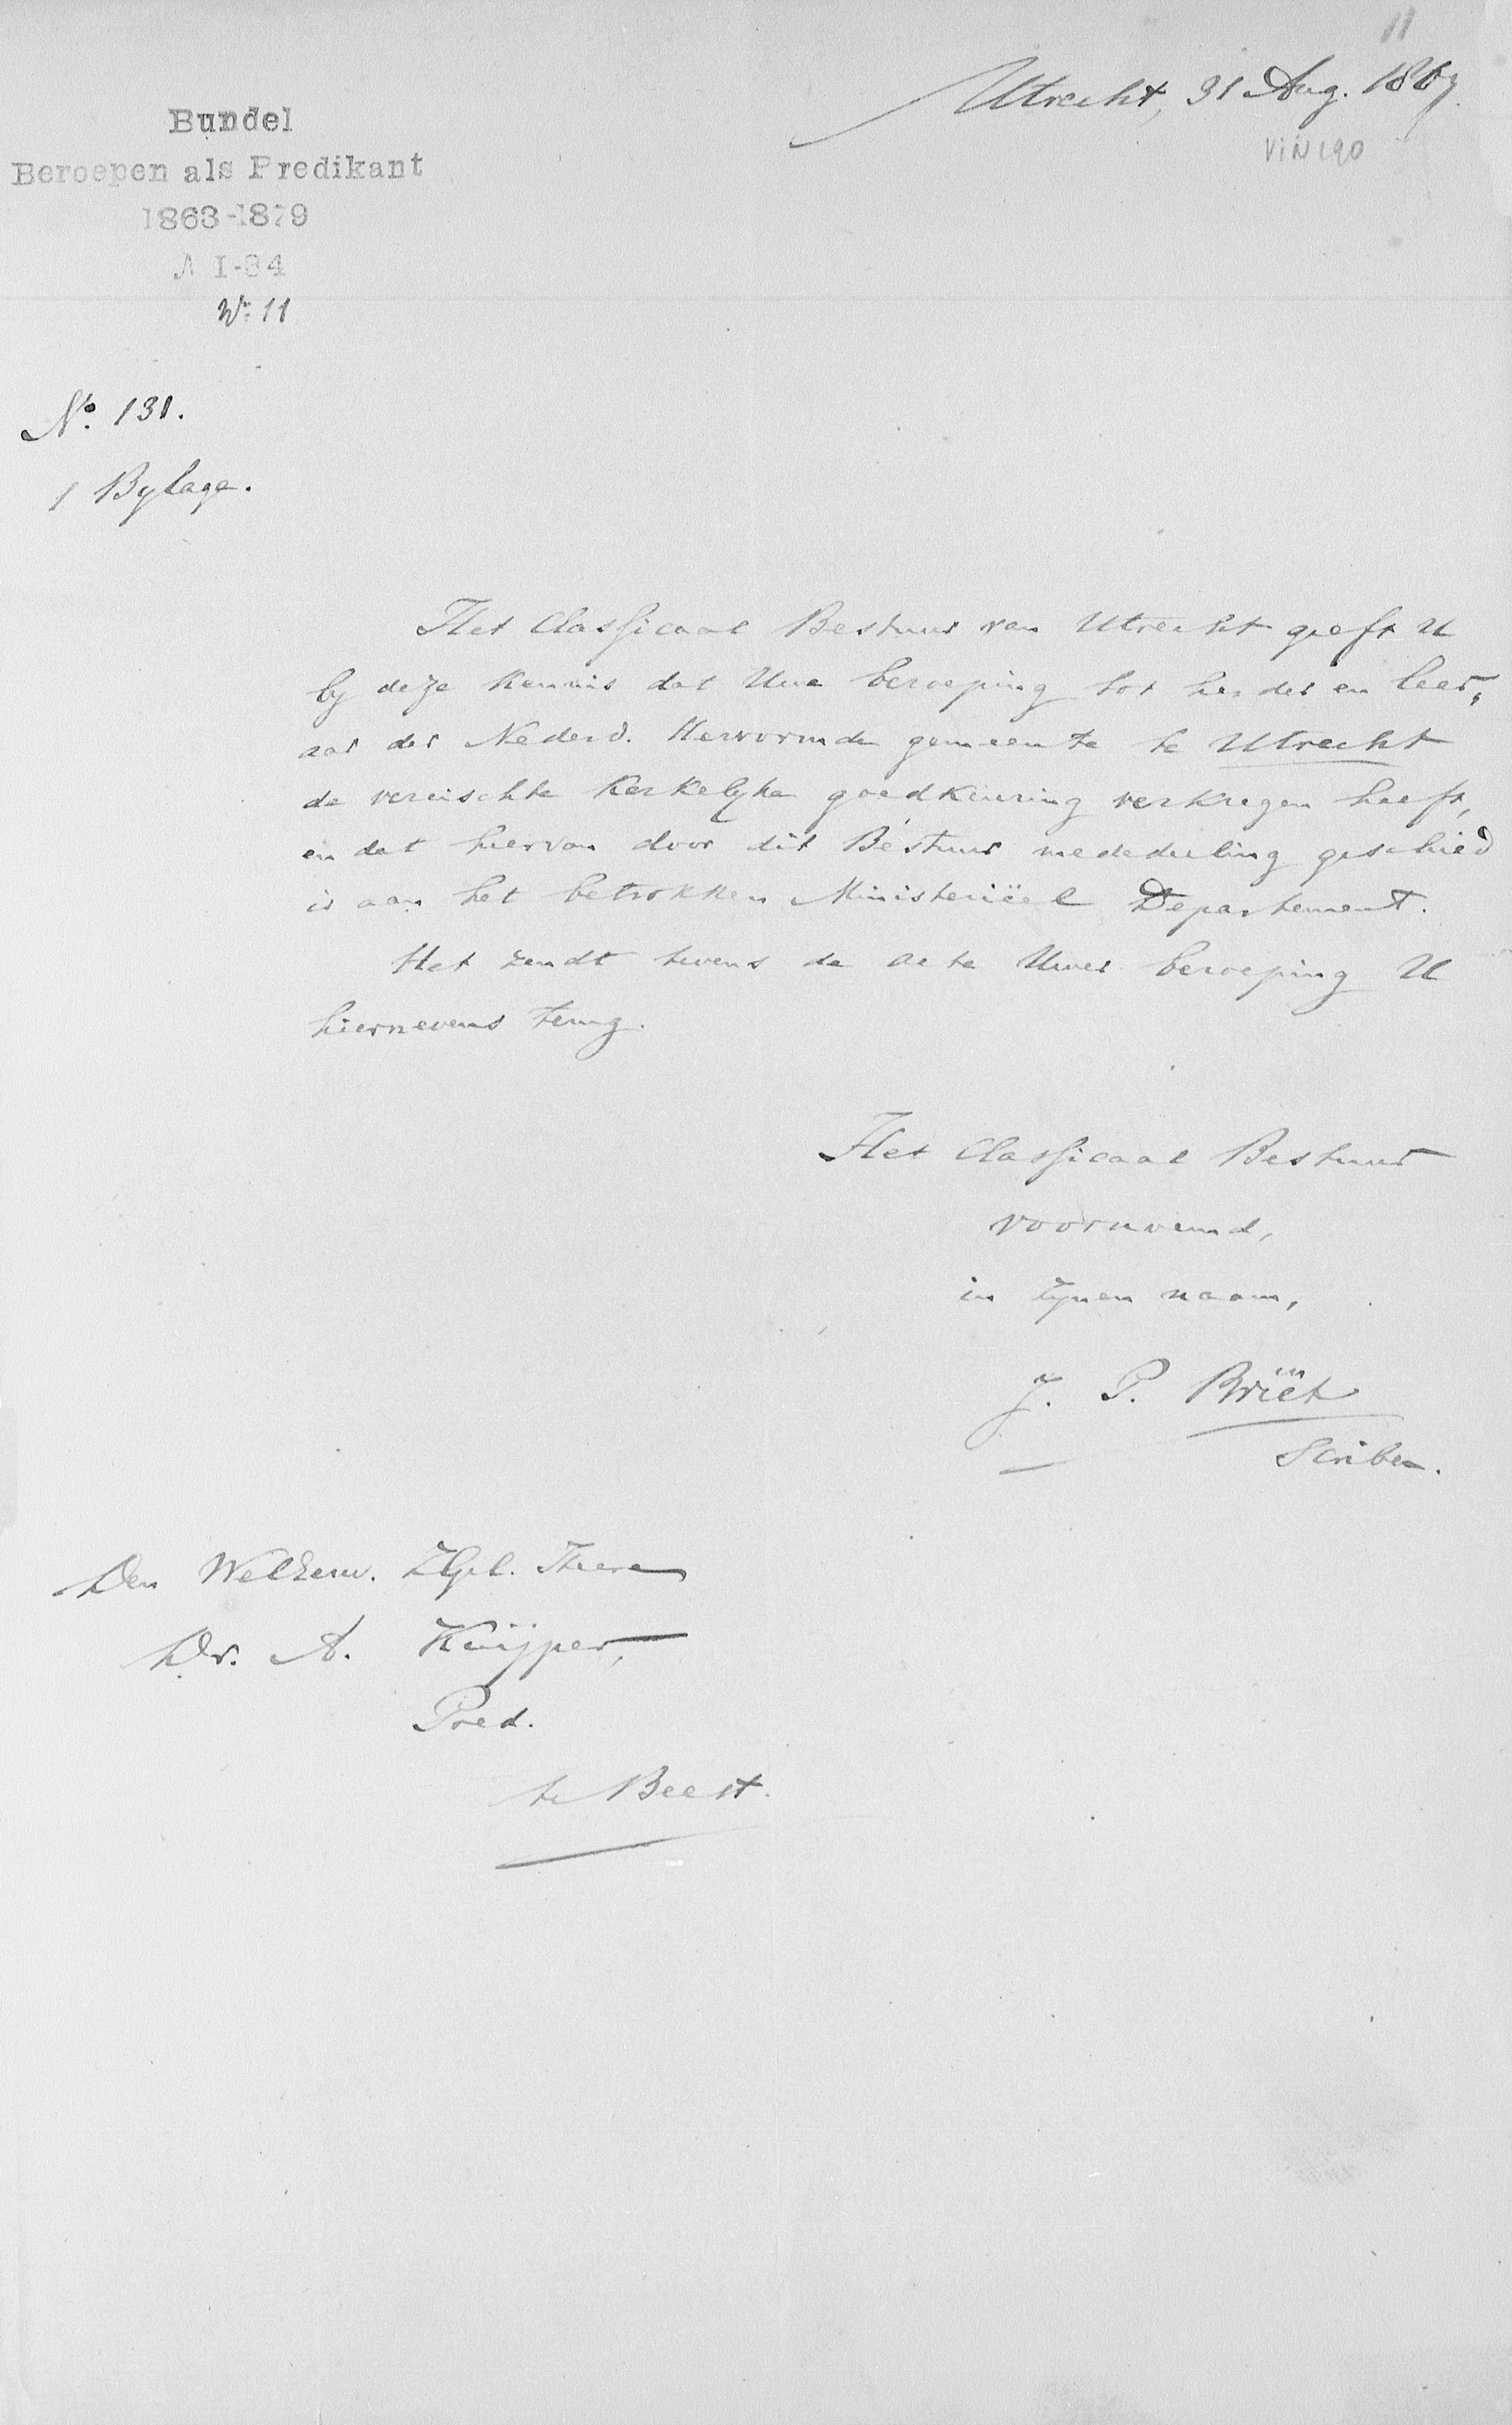 11
Utrecht, 31 Aug. 1867.
VIN 190
Bundel
Beroepen als Predikant
1863-1879
N I-34
No. 11
No. 131.
1 Bylage.
Het Classicaal Bestuur van Utrecht geeft U
by deze kennis dat Uwe beroeping tot herder en leer„
aar der Nederd. Hervormde gemeente te Utrecht
de vereischte kerkelyke goedkeuring verkregen heeft,
en dat hiervan door dit Bestuur mededeeling geschied
is aan het betrokken Ministeriëel Departement.
Het zendt tevens de acte Uwer beroeping U
hiernevens terug.
Het Classicaal Bestuur
voornoemd,
in zynen naam,
J. P. Briët
Scriba.
Den Weleerw. ZGel. Heere
Dr. A. Kuijper,
Pred.
te Beest.